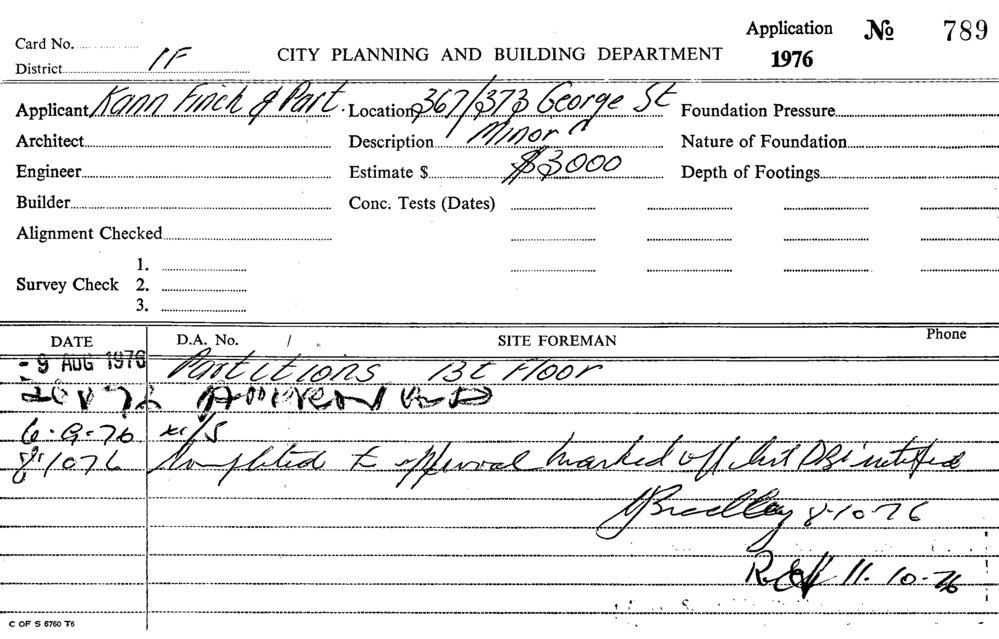 Application No 789
Card No.
CITY PLANNING AND BUILDING DEPARTMENT 1976
District 1F
Applicant Kann Finch & Part. Location 367/373 George St Foundation Pressure
Architect Description Minor Nature of Foundation
Engineer Estimate $ $3000 Depth of Footings
Builder Conc. Tests (Dates)
Alignment Checked
1.
Survey Check 2.
3.
DATE D.A. No. / SITE FOREMAN Phone
- 9 AUG 1976 Partitions 13t Floor
APPROVED
6.9.76 /S
8.1076 Completed to approval marked off list DBI notified
Bradley 8-10-76
11.10.76
C OF S 6760 T6